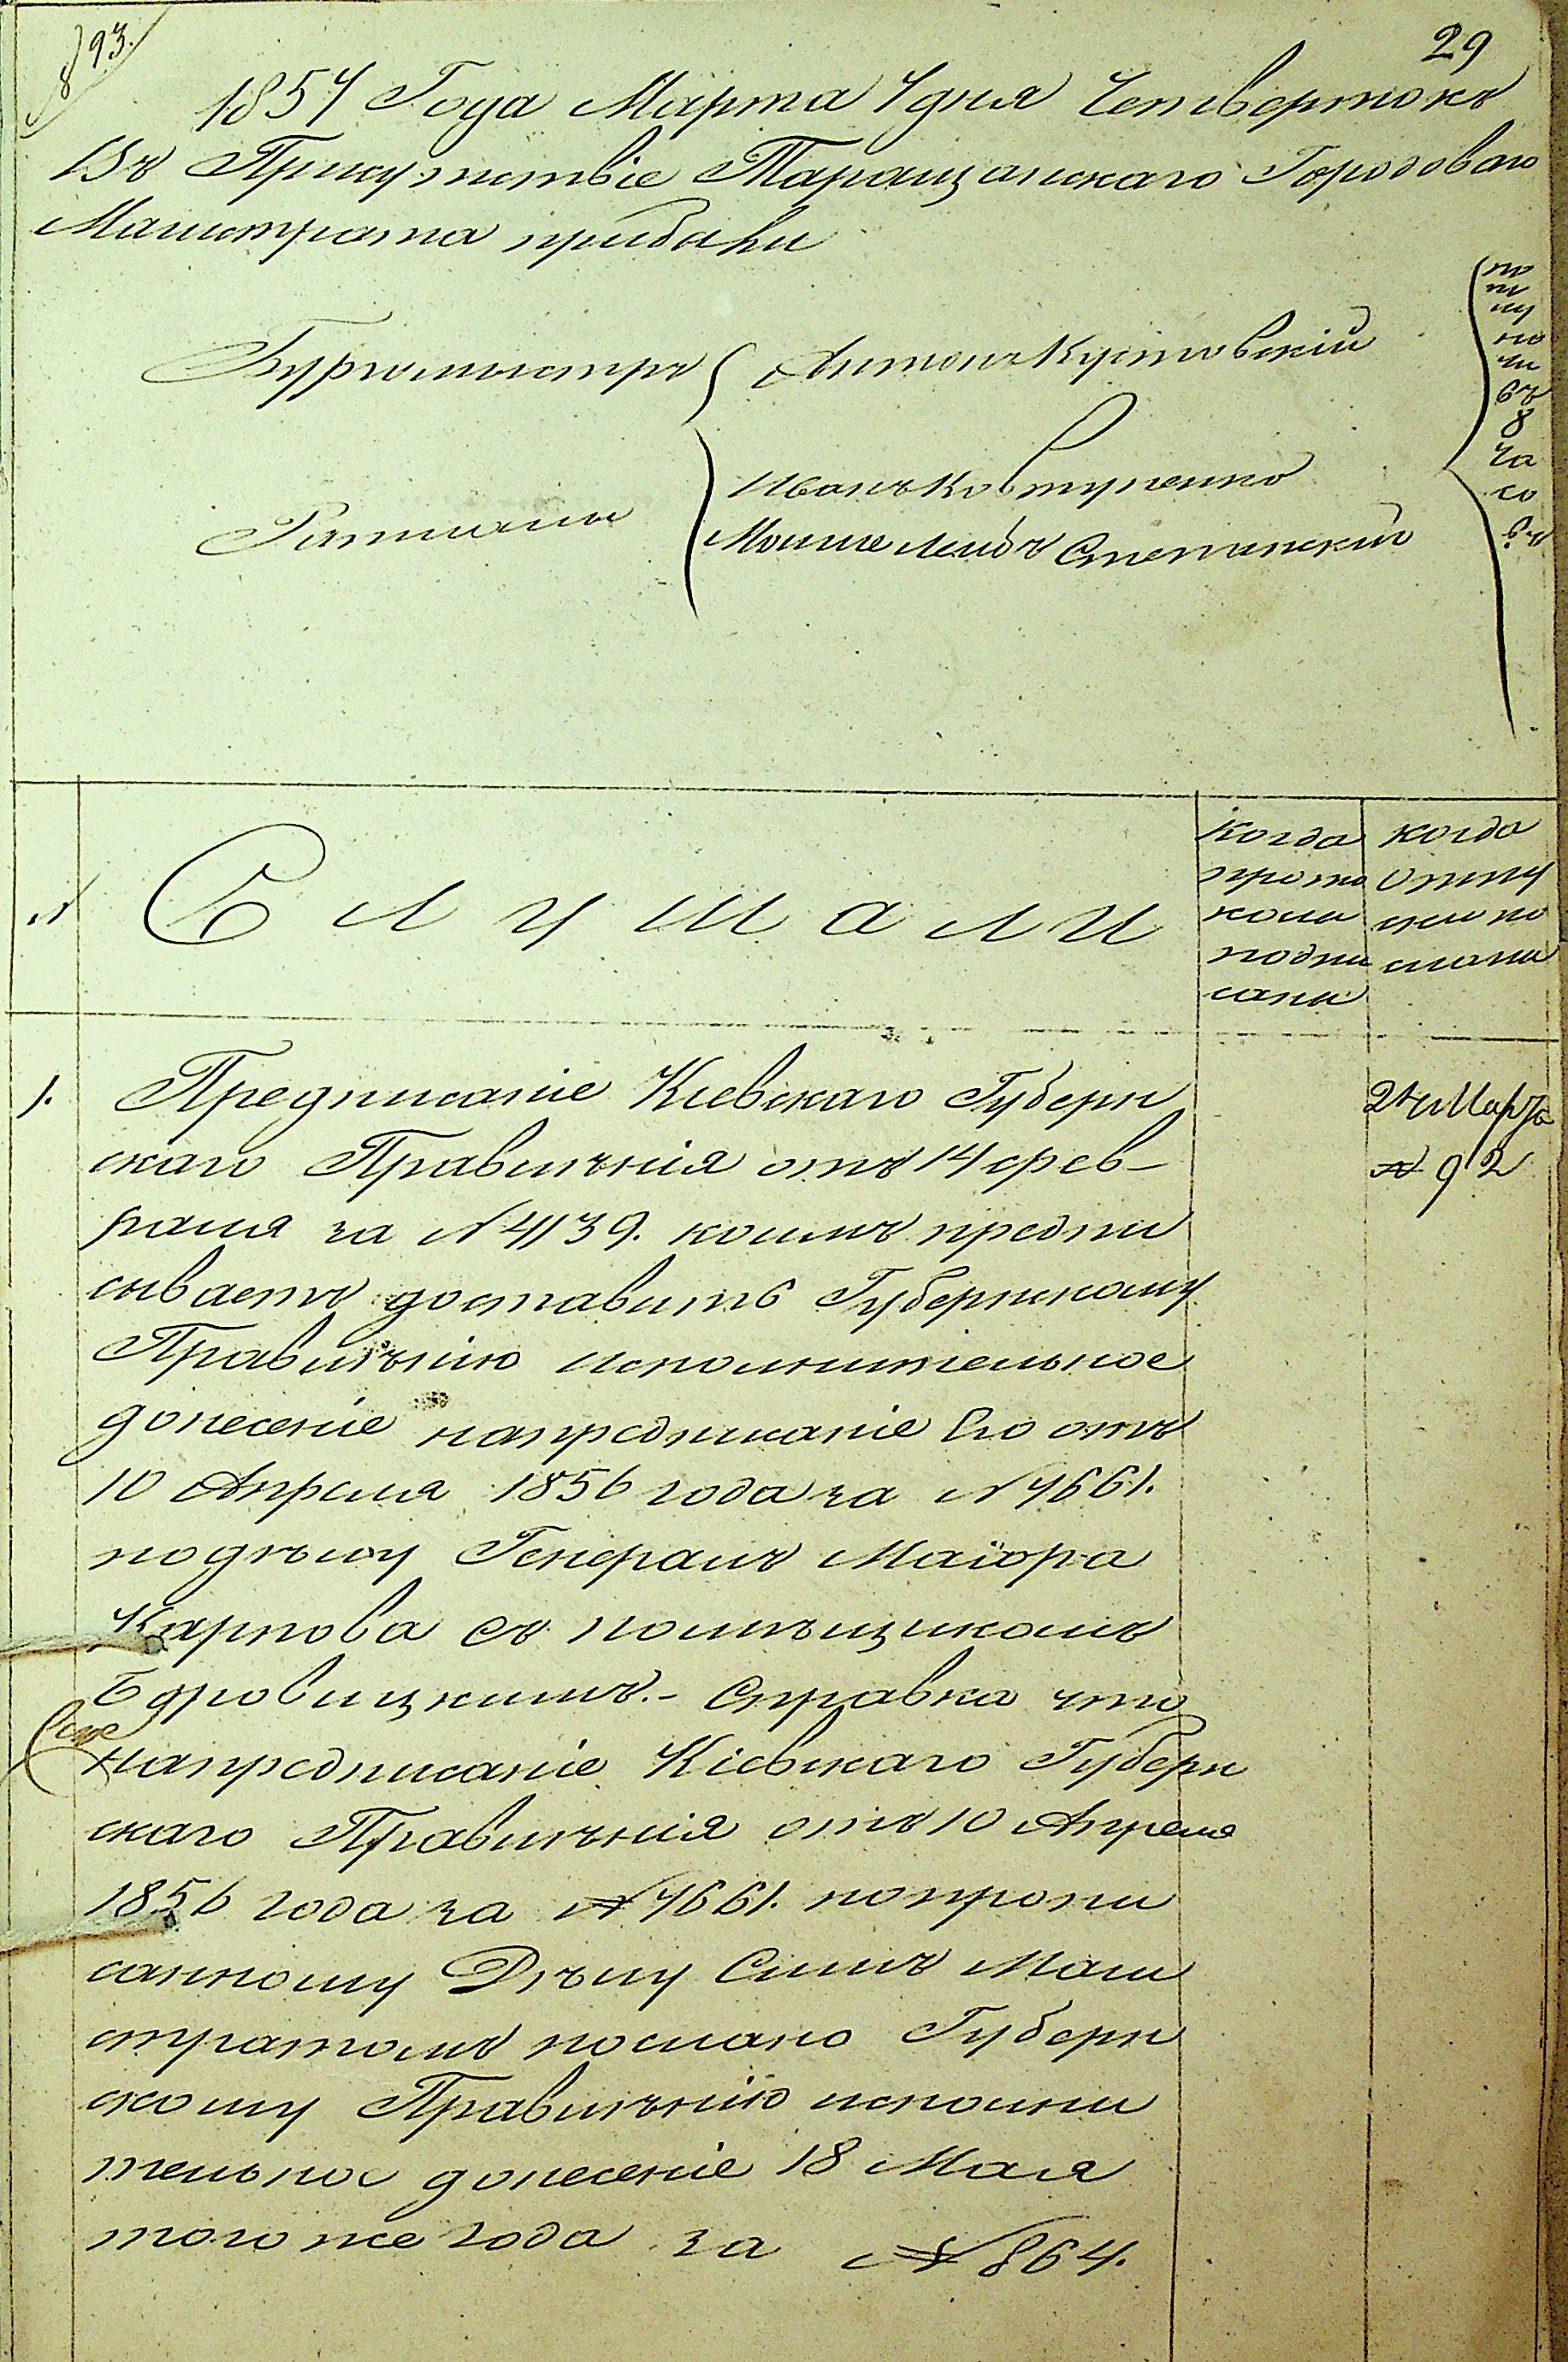 93.
29
1857 Года Марта 7 дня Четвертокъ
Въ Присутствіе Таращанскаго Городоваго
Магистрата прибыли
Бургомистръ Антонъ Кустовскій
Ратманы Иванъ Ковтуненко
Мошко Лейбъ Степанскій
по
по
лу
но
чи
въ
8
ча
со
въ
№
Слушали
когда
прото
колы
подпи
саны
когда
отпу
ски по
сланы
1.
Предписаніе Кіевскаго Губерн
скаго Правленія отъ 14 Фев-
раля за № 4139. коимъ предпи
сываетъ доставить Губернскому
Правленію исполнительное
донесеніе на предписаніе Его отъ
10 Апреля 1856 года за № 7661.
по дѣлу Генералъ Маіора
Карпова съ помѣщикомъ
Бдровицкимъ.- Справка что
на предписаніе Кіевскаго Губерн
скаго Правленія отъ 10 Апреля
1856 года за № 7661. по пропи
санному Дѣлу Симъ Маги
стратомъ послано Губерн
скому Правленію исполни
тельное донесеніе 18 Мая
того же года за № 864.
Марта
№ 92